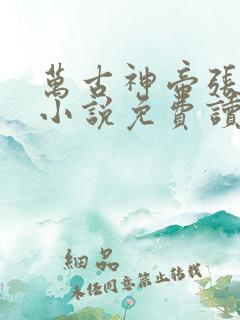 萬古神帝張
小說免費讀
細品
未任同意禁止轉載